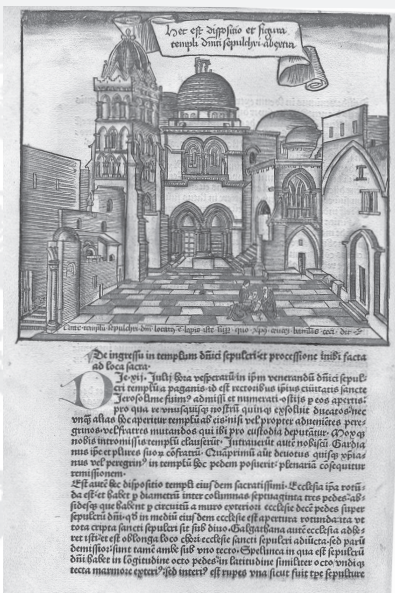 Hec est dispositio et figura
templi dñici sepulchri ab extra
Ante templũ sepulchri dñi locatus ẽ lapis iste sup quo xp̃s
De ingressu in templum dñici sepulcri et processione inibi facta
ad loca sacra.
Die .xij. Julij hora vesperarũ in ip̃m venerandũ dñici sepul
cri templũ a paganis id est rectoribus ip̃ius ciuitatis sancte
Jerosolime fuimꝰ admissi et numerati ostijs eqs apertis.
pro qua re vnusquisqꝫ nostrũ quinqꝫ exsoluit ducatos nec
vnq̃ alias hoc aperitur templũ ab eis nisi vel propter aduenientes pere
grinos vel fratres mutandos qui ibi pro custodia deputãtur. Mox aũt
nobis intromissis templũ clauserũt. Intrauerũt autẽ nobiscũ Gardia
nus ip̃e et plures suoꝝ cõfratrũ. Quãprimũ aũt deuotus quisqꝫ xp̃ia
nus vel peregrinꝰ in templũ hoc pedem posuerit plenariã cõsequitur
remissionem.
Est autẽ hec dispositio templi eiusdem sacratissimi. Ecclesia ip̃a rotũ
da est et habet p diametrũ inter columnas septuaginta tres pedes ab
sides qꝫ habent p circuitũ a muro exteriori ecclesie decẽ pedes super
sepulcrũ dñi qd in mediũ eiusdem ecclesie est apertura rotunda ita vt
tota cripta sancti sepulcri sit sub diuo. Golgathana autẽ ecclesia adhe
ret isti et est oblonga loco chori ecclesie sancti sepulcri adiũcta sed parũ
demissior sunt tamẽ ambe sub vno tecto. Spelunca in qua est sepulcrũ
dñi habet in lõgitudine octo pedes in latitudine similiter octo vndiqꝫ
tecta marmore exteriꝰ sed interiꝰ est rupes vna sicut fuit tp̃e sepulture